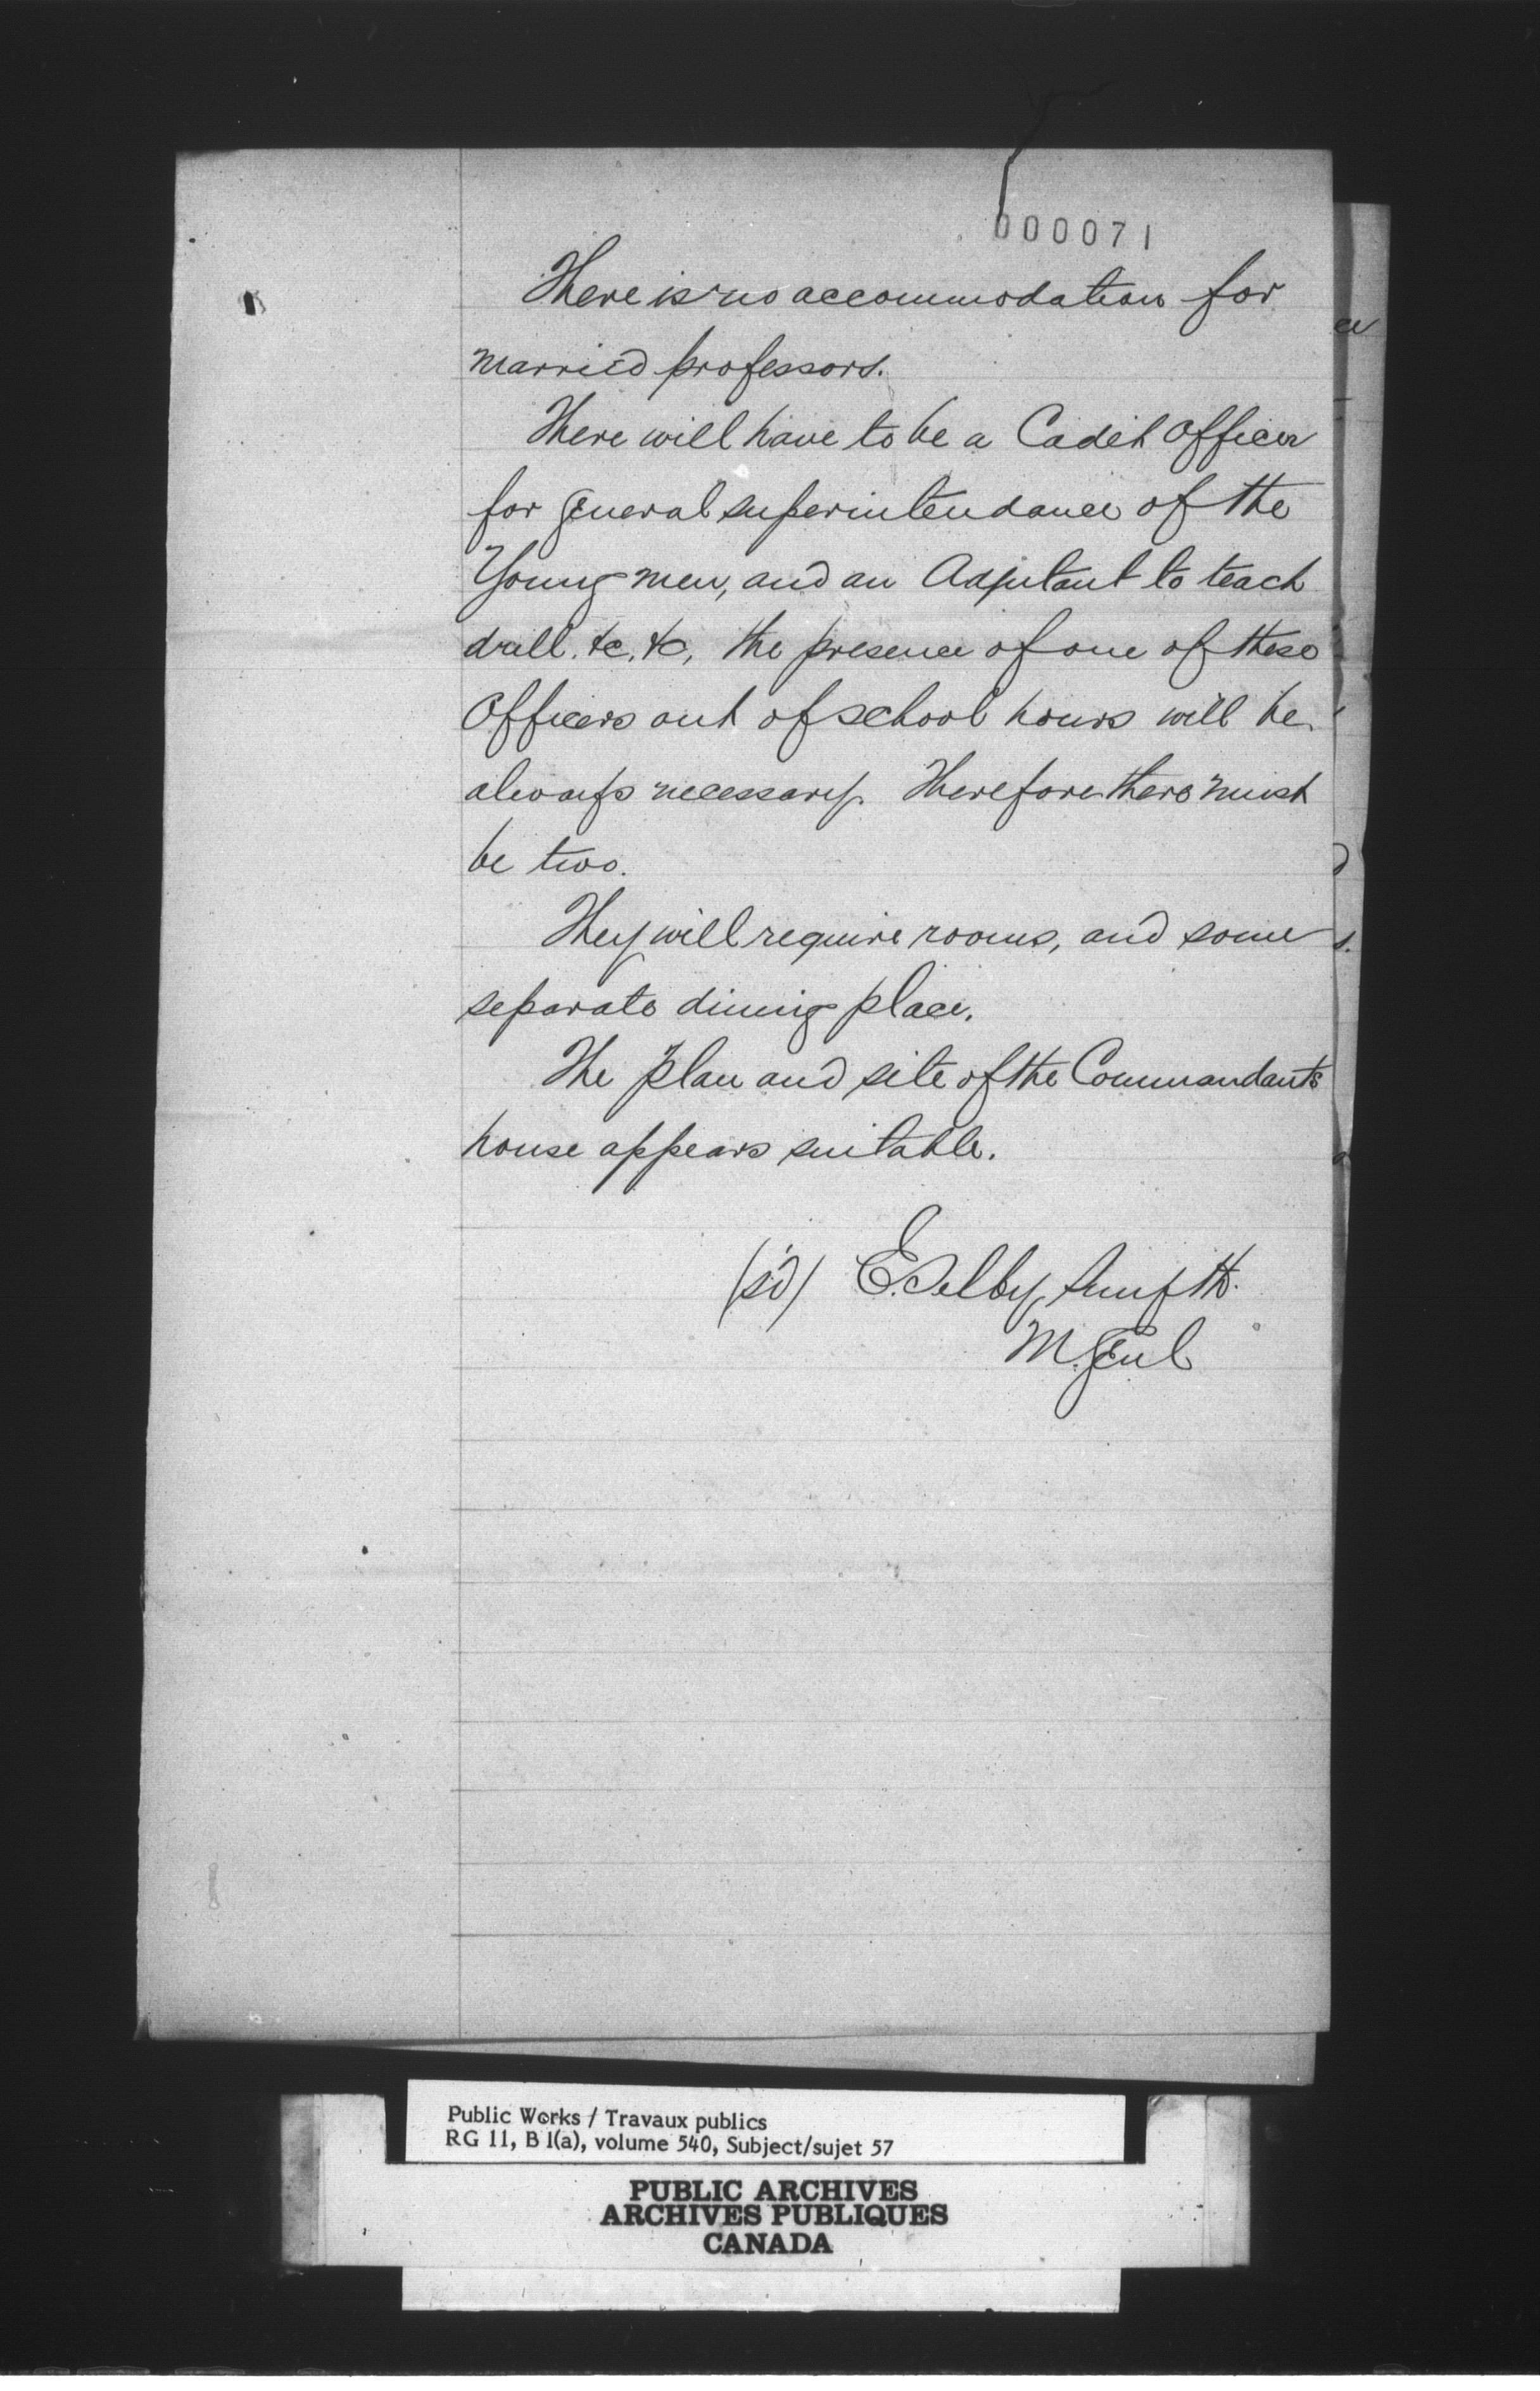 000071
There is no accommodation for
married professors.
There will have to be a Cadet Officer
for general superintendance of the
Young men, and an Adjutant to teach
drill. &c, &c, the presence of one of these
Officers out of school hours will be
always necessary. Therefore there must
be two.
They will require rooms, and some
separate dining place.
The plan and site of the Commandants
house appears suitable.
(s'd) E. Selby Smyth.
M. Genl
Public Works / Travaux publics
RG 11, B 1(a), volume 540, Subject/sujet 57
PUBLIC ARCHIVES
ARCHIVES PUBLIQUES
CANADA